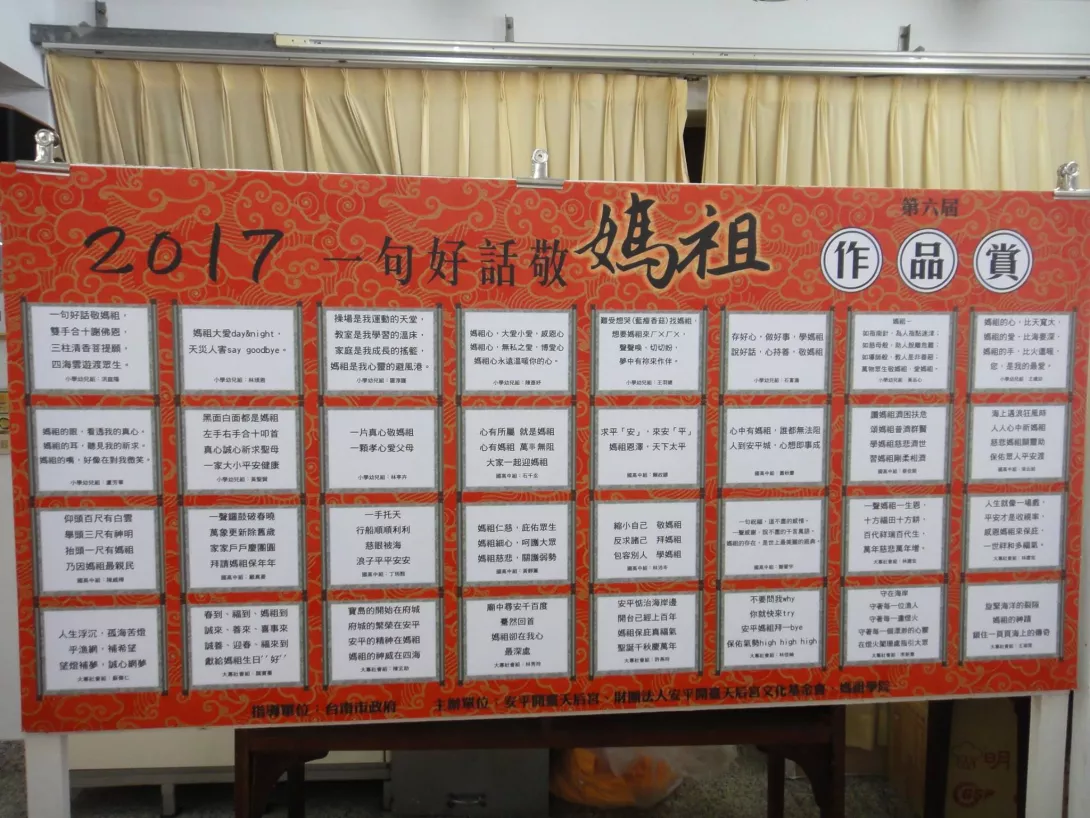 第六屆
2017 一句好話敬媽祖 作品賞
一句好話敬媽祖，
雙手合十謝佛恩，
三柱清香菩提願，
四海雲遊渡眾生。
小學幼兒組：
媽祖大愛day&night，
天災人害say goodbye。
小學幼兒組：
操場是我運動的天堂，
教室是我學習的溫床，
家庭是我成長的搖籃，
媽祖是我心靈的避風港。
小學幼兒組：
媽祖心，大愛小愛，感恩心
媽祖心，無私之愛，博愛心
媽祖心永遠溫暖你的心。
小學幼兒組：
難受想哭(藍瘦香菇)找媽祖，
想要媽祖來ㄏㄨㄏㄨ，
聲聲喚、切切盼，
夢中有祢來作伴。
小學幼兒組：王
存好心，做好事，學媽祖
說好話，心持善，敬媽祖
小學幼兒組：
媽祖─
如指南針，為人指點迷津；
如慈母般，助人脫離危難；
如導師般，教人是非善惡；
萬物眾生敬媽祖，愛媽祖。
小學幼兒組：
媽祖的心，比天寬大，
媽祖的愛，比海要深，
媽祖的手，比火還暖，
您，是我的最愛。
小學幼兒組：
媽祖的眼，看透我的真心，
媽祖的耳，聽見我的祈求，
媽祖的嘴，好像在對我微笑。
小學幼兒組：盧芳華
黑面白面都是媽祖
左手右手合十叩首
真心誠心祈求聖母
一家大小平安健康
小學幼兒組：
一片真心敬媽祖
一顆孝心愛父母
小學幼兒組：
心有所屬 就是媽祖
心有媽祖 萬事無阻
大家一起迎媽祖
國高中組：石千玉
求平「安」，來安「平」
媽祖恩澤，天下太平
國高中組：
心中有媽祖，誰都無法阻
人到安平城，心想即事成
國高中組：
讚媽祖濟困扶危
頌媽祖普濟群醫
學媽祖慈悲濟世
習媽祖剛柔相濟
國高中組：
海上遇浪狂風時
人人心中祈媽祖
慈悲媽祖顯靈助
保佑眾人平安渡
國高中組：
仰頭百尺有白雲
舉頭三尺有神明
抬頭一尺有媽祖
乃因媽祖最親民
國高中組：陳威輝
一聲鑼鼓破春曉
萬象更新除舊歲
家家戶戶慶團圓
拜請媽祖保年年
國高中組：
一手托天
行船順順利利
慈眼被海
浪子平平安安
國高中組：
媽祖仁慈，庇佑眾生
媽祖細心，呵護大眾
媽祖慈悲，關護弱勢
國高中組：
縮小自己 敬媽祖
反求諸己 拜媽祖
包容別人 學媽祖
國高中組：
一句祝福，道不盡的感情，
一聲感謝，說不盡的千言萬語，
媽祖的存在，是世上最威麗的恩典。
國高中組：
一聲媽祖一生恩，
十方福田十方耕，
百代祥瑞百代生，
萬年慈悲萬年增。
大專社會組：
人生就像一場戲，
平安才是收穫率，
感恩媽祖來保庇，
一世祥和多福氣。
大專社會組：
人生浮沉，孤海苦燈
乎漁網，補希望
望燈補夢，誠心網夢
大專社會組：
春到、福到、媽祖到
誠來、善來、喜事來
誠善、迎春、福來到
獻給媽祖生日"好"
大專社會組：
寶島的開始在府城
府城的繁榮在安平
安平的精神在媽祖
媽祖的神威在四海
大專社會組：
廟中尋安千百度
驀然回首
媽祖卻在我心
最深處
大專社會組：
安平惦治海岸邊
開台已經上百年
媽祖保庇真福氣
聖誕千秋慶萬年
大專社會組：
不要問我why
你就快來try
安平媽祖拜一bye
保佑氣勢high high high
大專社會組：
守在海岸
守著每一位漁人
守著每一盞燈火
守著每一個漂渺的心靈
在燈火闌珊處指引大眾
大專社會組：
旋緊海洋的裂隙
媽祖的神蹟
鎖住一頁頁海上的傳奇
大專社會組：
指導單位：台南市政府 主辦單位：安平開臺天后宮、財團法人安平開臺天后宮文化基金會、媽祖學院
明